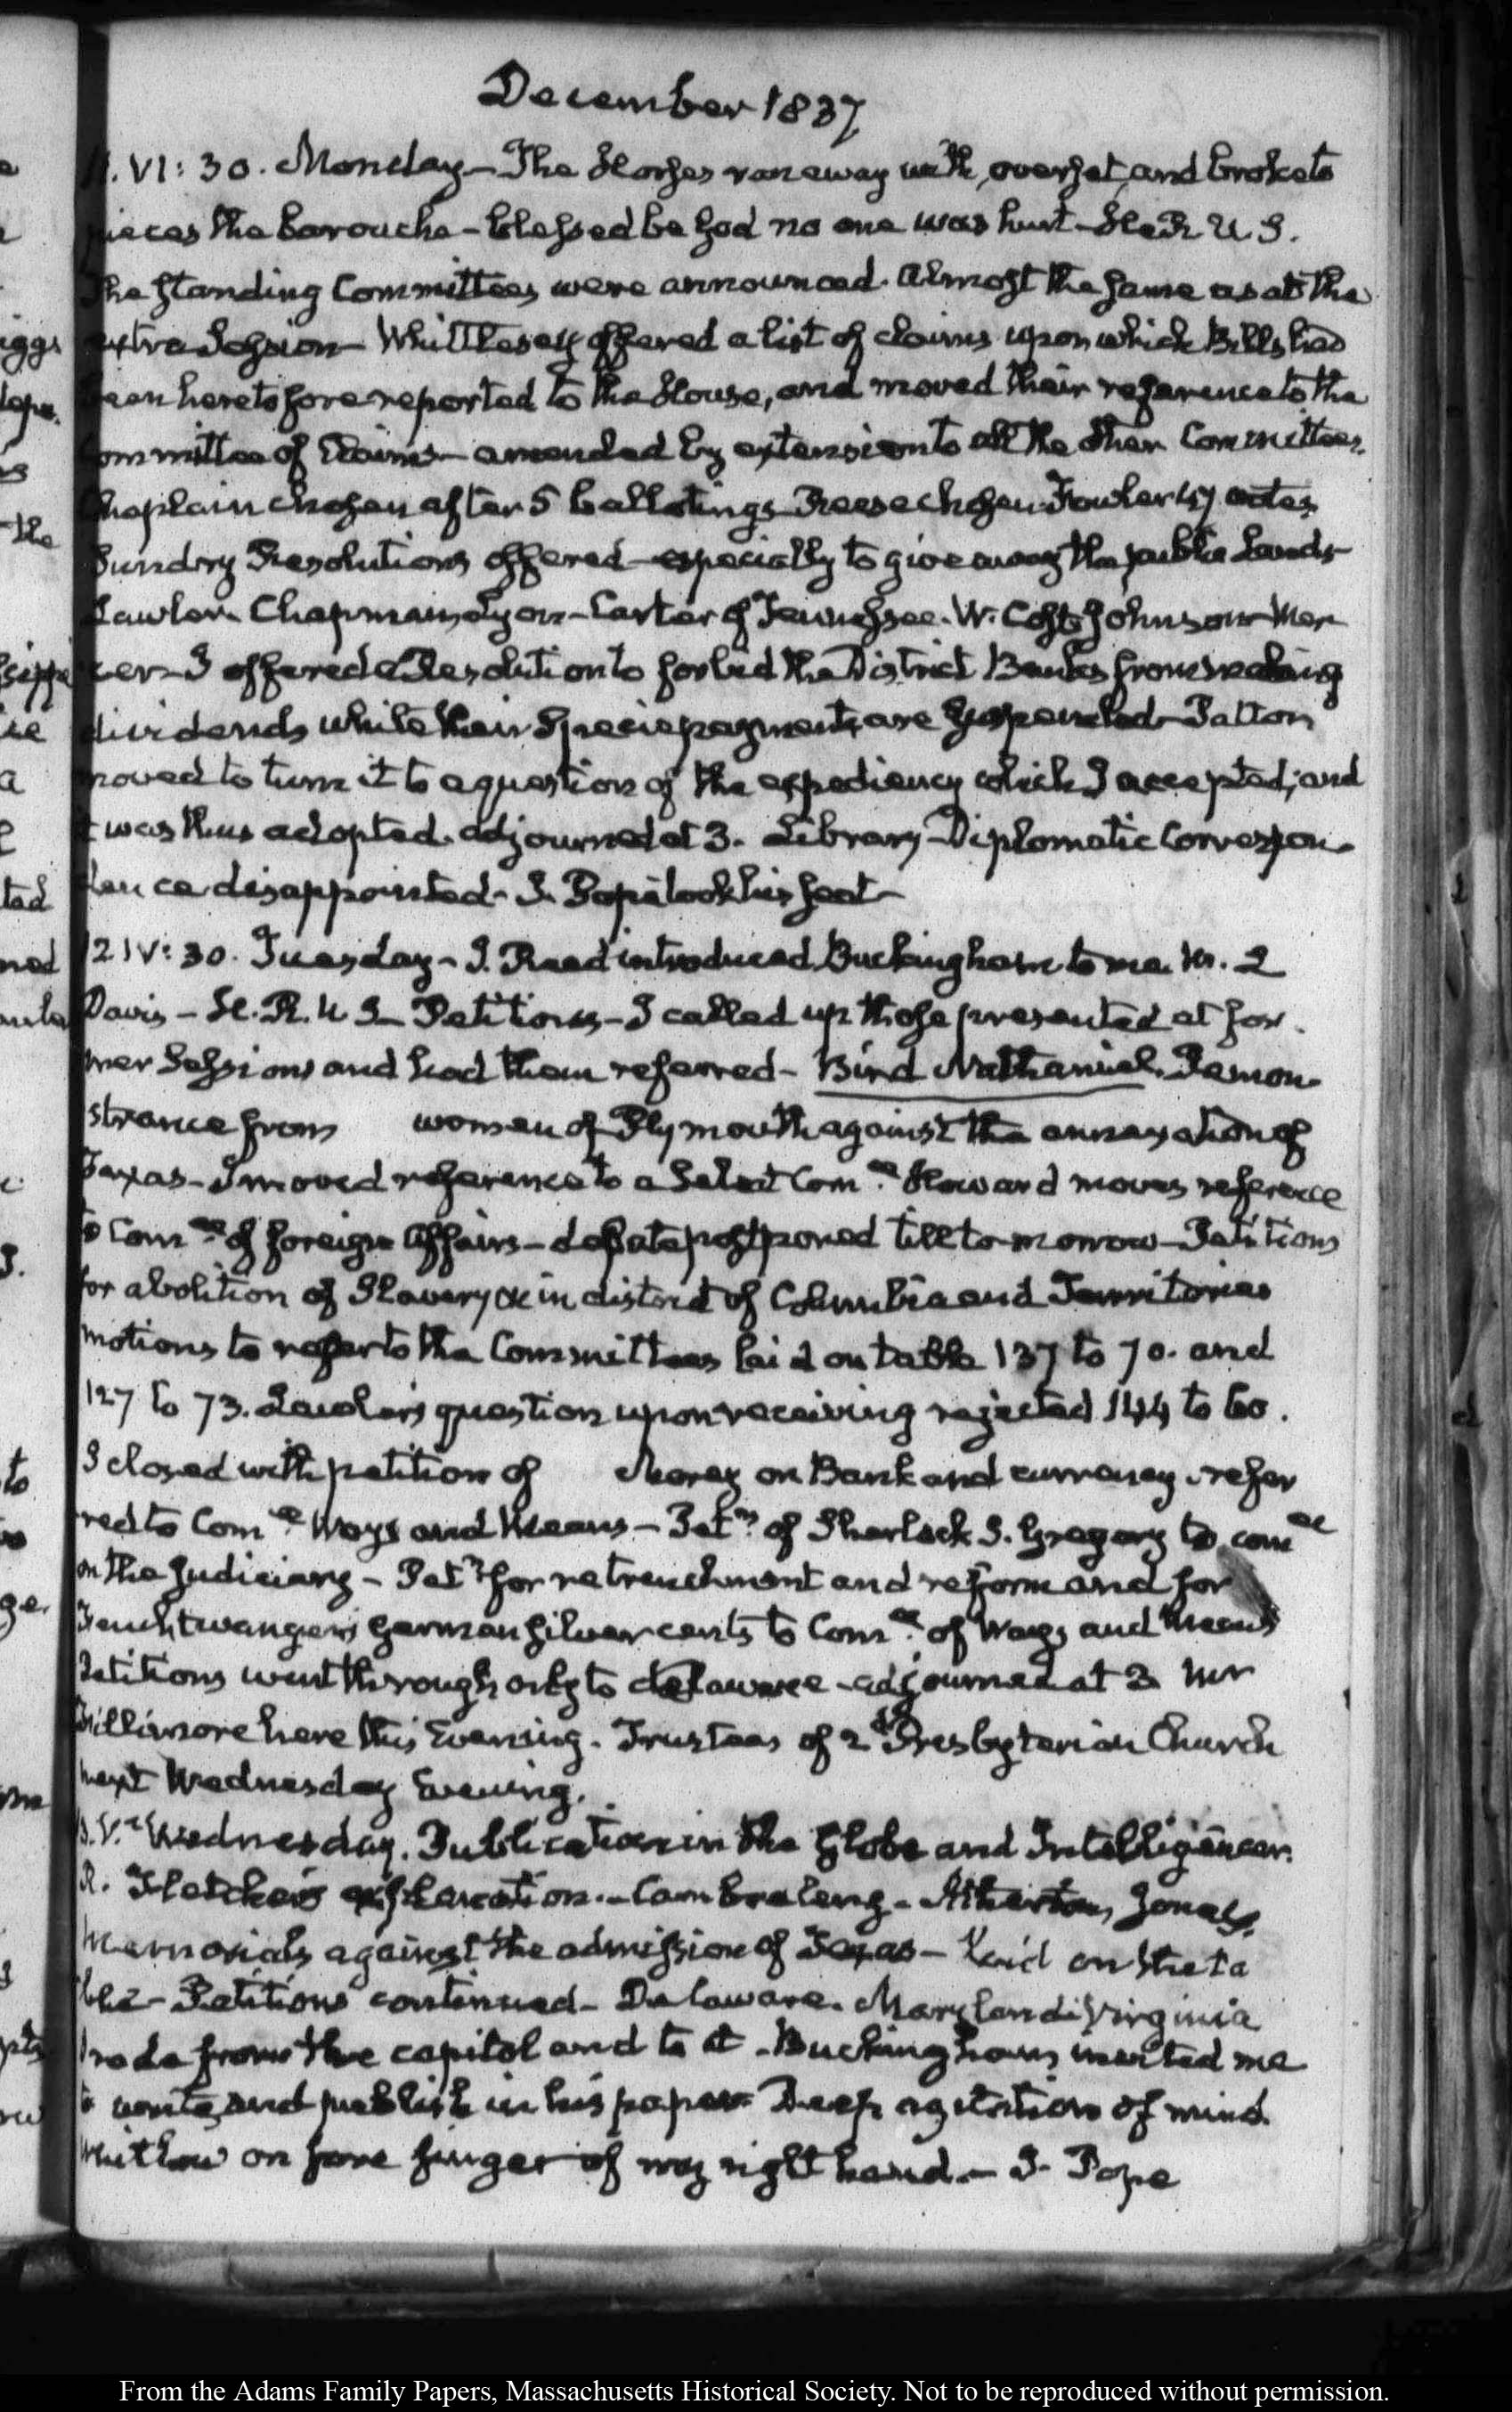 December 1837
VI: 30. Monday — The Horses ran away with, overset, and broke to
pieces the barouche — blessed be God no one was hurt — H. R. U S.
The standing Committees were announced. Almost the same as at the
extra Session — Whittlesey offered a list of claims upon which Bills had
been heretofore reported to the House, and moved their reference to the
Committee of Claims — amended by extension to all the other Committees.
Chaplain chosen after 5 ballotings Reese chosen Fowler 47 votes
Sundry Resolutions offered — especially to give away the public Lands
Lawler. Chapman, Lyon — Carter of Tennessee. W. Cost Johnson Mer
cer — I offered a Resolution to forbid the District Banks from making
dividends while their Specie payments are suspended — Patton
moved to turn it to a question of the expediency which I accepted; and
it was thus adopted. adjourned at 3. Library — Diplomatic Correspon-
dence disappointed — J. Pope took his seat —
12 IV: 30. Tuesday — J. Reed introduced Buckingham to me. Mr.
Davis — H. R. U S — Petitions — I called up those presented at for-
mer Sessions and had them referred — Bird Nathaniel. Remon-
strance from women of Plymouth against the annexation of
Texas — I moved reference to a Select Comee. Howard moves reference
to Comee of foreign Affairs — debate postponed till to-morrow — Petitions
for abolition of Slavery &c in district of Columbia and Territories
motions to refer to the Committees laid on table 137 to 70. and
127 to 73. Lawler's question upon receiving rejected 144 to 60.
I closed with petition of Morey on Bank and currency refer
red to Comee Ways and Means — Petn of Sherlock S. Gregory to comee
on the Judiciary — Petn for retrenchment and reform and for
Feuchtwanger's German silver cents to Comee of Ways and Means
Petitions went through only to Delaware — adjourned at 3 Mr
Fillmore here this Evening. Trustees of 2d Presbyterian Church
next Wednesday Evening.
V. Wednesday. Publication in the Globe and Intelligencer.
R. Fletcher's explanation. — Cambreleng — Atherton, Jones.
Memorials against the admission of Texas — laid on the ta
ble — Petitions continued — Delaware. Maryland Virginia
rode from the capitol and to it — Buckingham invited me
to write and publish in his paper Deep agitation of mind.
Whitlow on fore finger of my right hand. — J. Pope